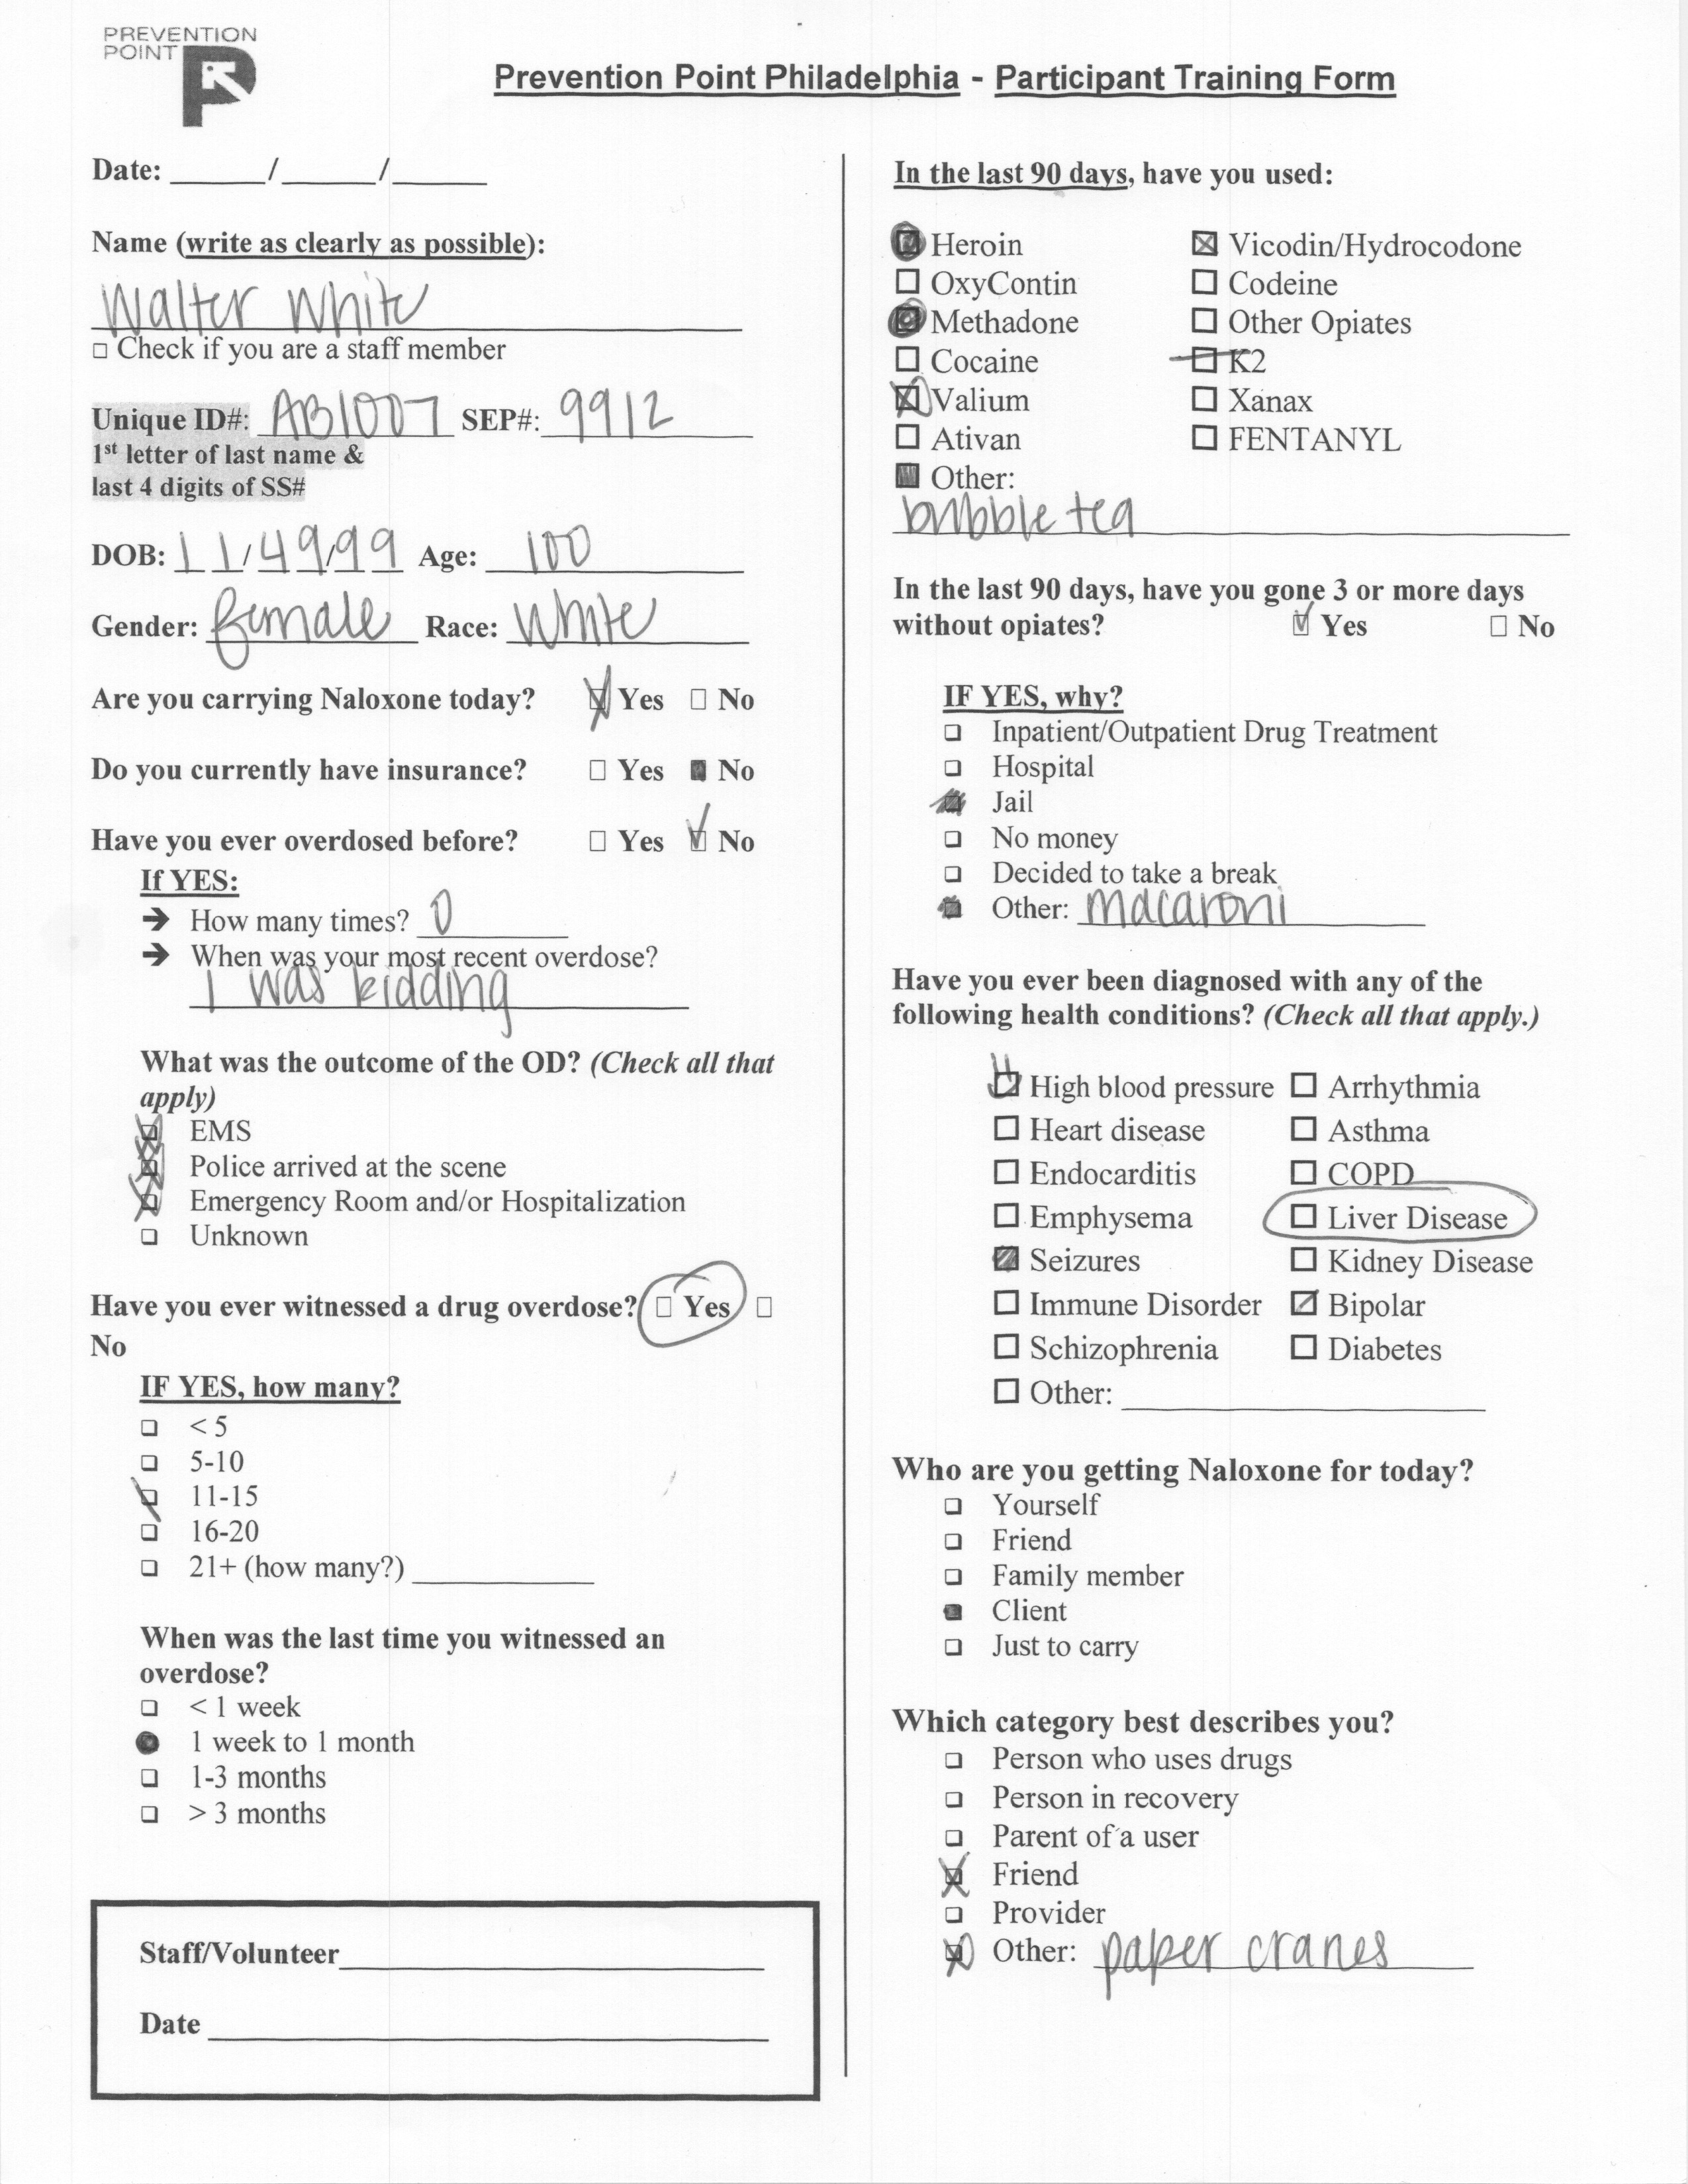 PREVENTION
POINT
Prevention Point Philadelphia - Participant Training Form
Date: ______/______/______
Name (write as clearly as possible):
Walter White
□ Check if you are a staff member
Unique ID#: AB1007 SEP#: 9912
1st letter of last name &
last 4 digits of SS#
DOB: 11/49/99 Age: 100
Gender: female Race: White
Are you carrying Naloxone today? ☒ Yes □ No
Do you currently have insurance? □ Yes ■ No
Have you ever overdosed before? □ Yes ☑ No
If YES:
➔ How many times? 0
➔ When was your most recent overdose?
I was kidding
What was the outcome of the OD? (Check all that
apply)
☒ EMS
☒ Police arrived at the scene
☒ Emergency Room and/or Hospitalization
□ Unknown
Have you ever witnessed a drug overdose? □ Yes □
No
IF YES, how many?
□ < 5
□ 5-10
☒ 11-15
□ 16-20
□ 21+ (how many?) ____________
When was the last time you witnessed an
overdose?
□ < 1 week
■ 1 week to 1 month
□ 1-3 months
□ > 3 months
Staff/Volunteer____________
Date ____________
In the last 90 days, have you used:
■ Heroin ☒ Vicodin/Hydrocodone
□ OxyContin □ Codeine
■ Methadone □ Other Opiates
□ Cocaine □ K2
☒ Valium □ Xanax
□ Ativan □ FENTANYL
■ Other:
bubble tea
In the last 90 days, have you gone 3 or more days
without opiates? ☑ Yes □ No
IF YES, why?
□ Inpatient/Outpatient Drug Treatment
□ Hospital
■ Jail
□ No money
□ Decided to take a break
■ Other: macaroni
Have you ever been diagnosed with any of the
following health conditions? (Check all that apply.)
☑ High blood pressure □ Arrhythmia
□ Heart disease □ Asthma
□ Endocarditis □ COPD
□ Emphysema □ Liver Disease
■ Seizures □ Kidney Disease
□ Immune Disorder ☑ Bipolar
□ Schizophrenia □ Diabetes
□ Other: ____________
Who are you getting Naloxone for today?
□ Yourself
□ Friend
□ Family member
■ Client
□ Just to carry
Which category best describes you?
□ Person who uses drugs
□ Person in recovery
□ Parent of a user
☒ Friend
□ Provider
☒ Other: paper cranes